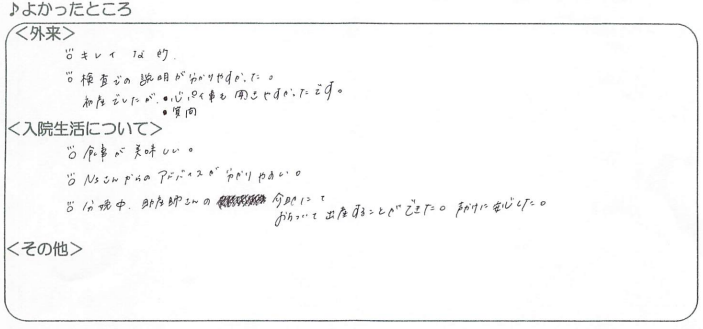 ♪よかったところ
<外来>
キレイな所
検査での説明が分かりやすかった。
初産でしたが、・心配事も聞きやすかったです。
・質問
<入院生活について>
食事が美味しい。
Nsさんからのアドバイスが分かりやすい。
分娩中、助産師さんの 介助にて
おちついて出産することができた。声かけに安心した。
<その他>